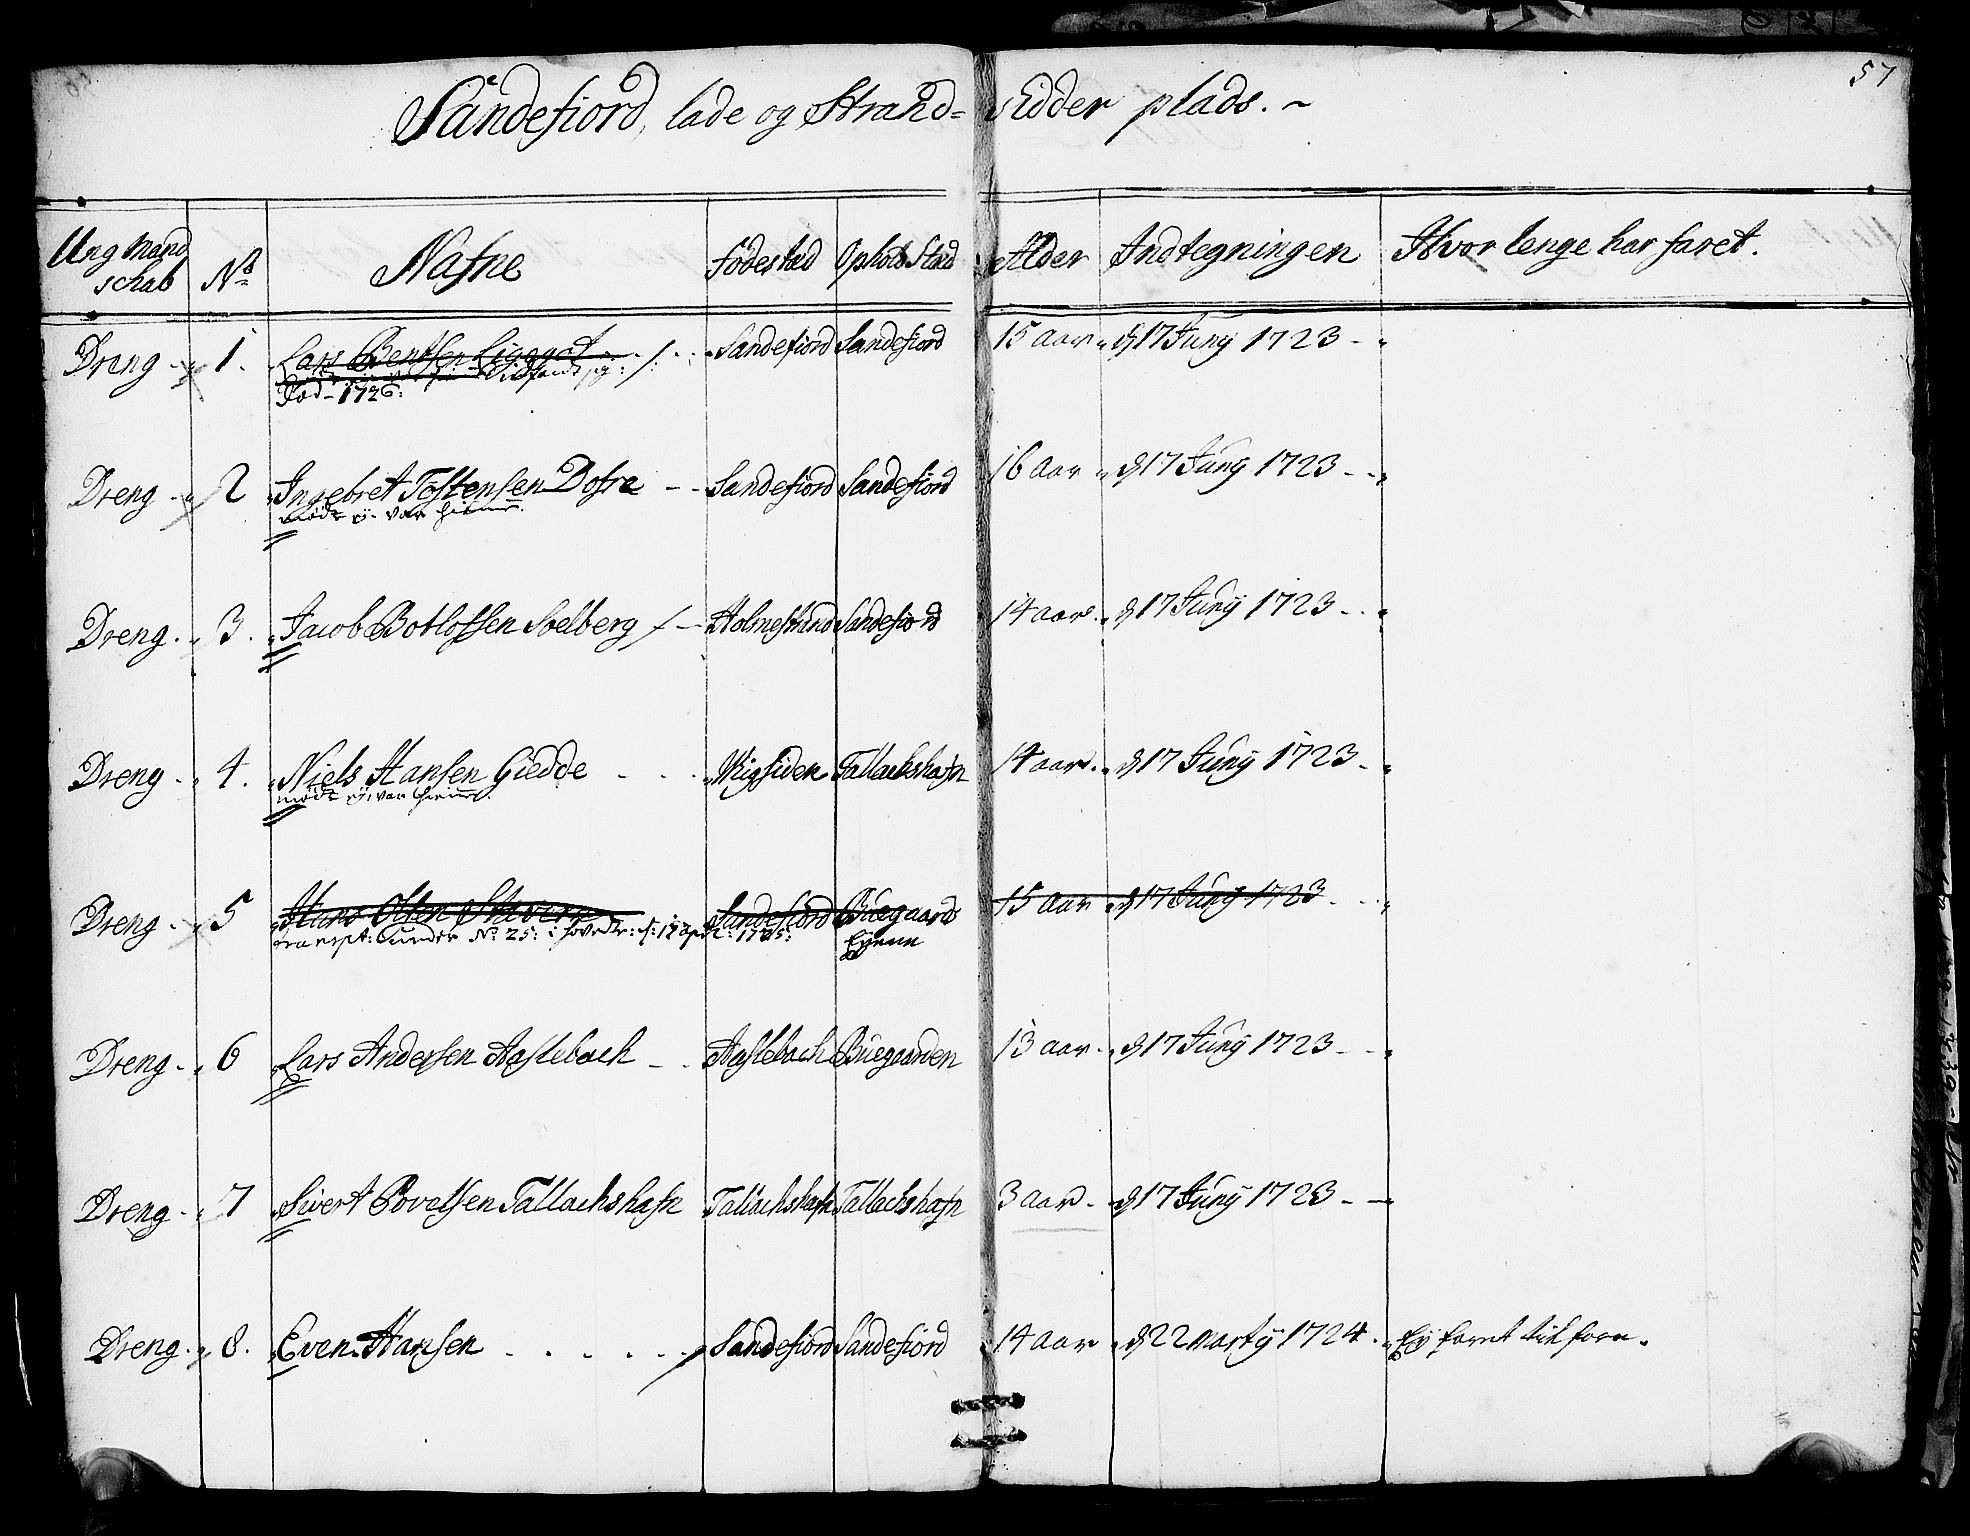 57
Sandefiord, lade og Strand= sidder plads. ~
Ung Mand schab No Nafne födestæd Opholds Stæd Alder Indtegningen Hvor lenge har faret.
Dreng 1. Lars Bentsen Sandefiord Sandefiord 15 aar d 17 Juny 1723
Död 1726:
Dreng 2 Ingebret Tostensen Dofre Sandefiord Sandefiord 16 aar d 17 Juny 1723
mödte ey. var hieme.
Dreng 3. Jacob Botlofsen Soelberg Holmestrand Sandefiord 14 aar d 17 Juny 1723
Dreng 4. Niels Hansen Giedde Wigsiden Tallachshafn 14 aar d 17 Juny 1723
mödte ey. var hieme.
Dreng 5 Hans Olsen Stavern Sandefiord Buegaards Eyene 15 aar d 17 Juny 1723
transpt: under No 25: i hovedr:
Dreng 6 Lars Andersen Haslebach Haslebach Buegaarden 13 aar d 17 Juny 1723
Dreng 7 Sivert Povelsen Tallachshafn Tallachshafn Tallachshafn 3 aar d 17 Juny 1723
Dreng 8. Even Hansen Sandefiord Sandefiord 14 aar d 22 Marty 1724. Ey faret tilforn.